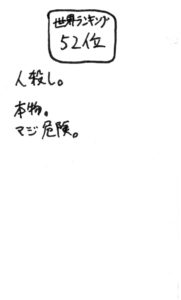 世界ランキング
52位
人殺し。
本物。
マジ危険。